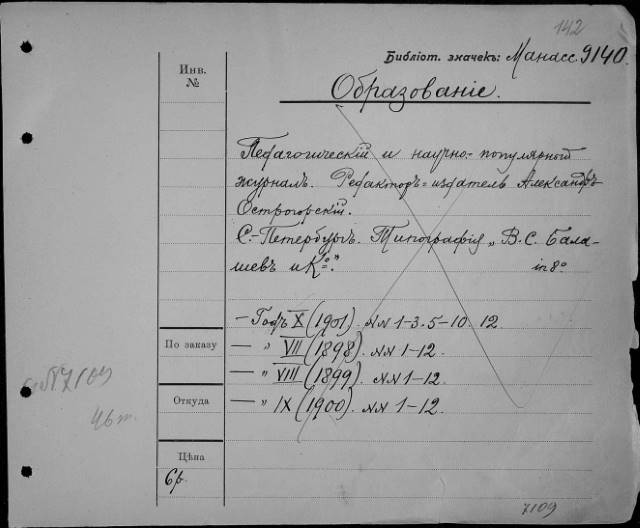 142
Библіот. значекъ: Манасс. 9140.
Инв.
№
Образованіе.
Педагогическій и научно-популярный
журналъ. Редакторъ-издатель Александръ
Острогорскій.
С.-Петербургъ. Типографія „В. С. Бала-
шевъ и К°." in 8°
— Годъ X (1901). №№ 1-3. 5-10. 12.
По заказу
— „ VII (1898). №№ 1-12.
— „ VIII (1899). №№ 1-12.
Откуда
— „ IX (1900). №№ 1-12
Цѣна
6 р.
7109